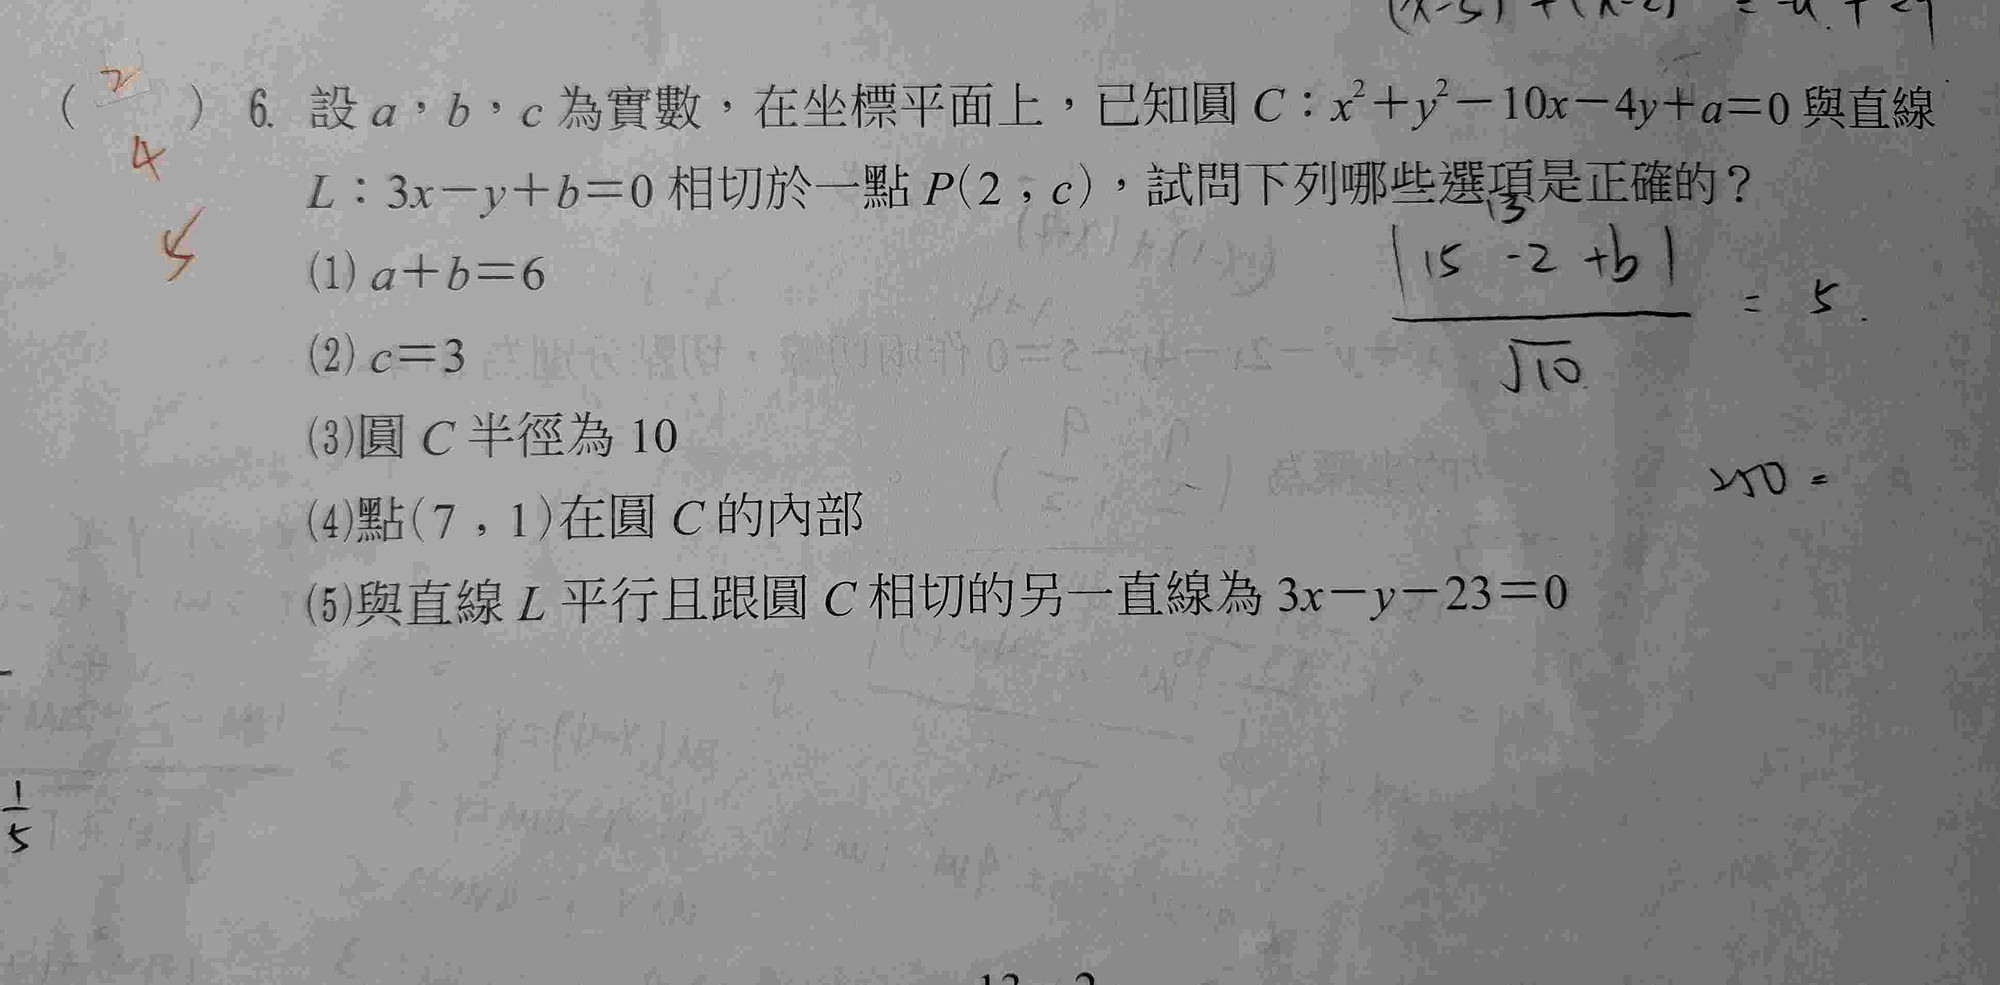 ( 2 ) 6. 設 a，b，c 為實數，在坐標平面上，已知圓 C：x²+y²−10x−4y+a=0 與直線
4
L：3x−y+b=0 相切於一點 P(2，c)，試問下列哪些選項是正確的？
5
13
(1) a+b=6
|15 -2 +b|
= 5
√10
(2) c=3
(3)圓 C 半徑為 10
250 =
(4)點(7，1)在圓 C 的內部
(5)與直線 L 平行且跟圓 C 相切的另一直線為 3x−y−23=0
1
5